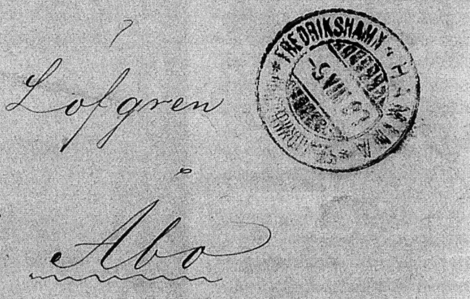 Löfgren
Åbo
FREDRIKSHAMN * HAMINA *